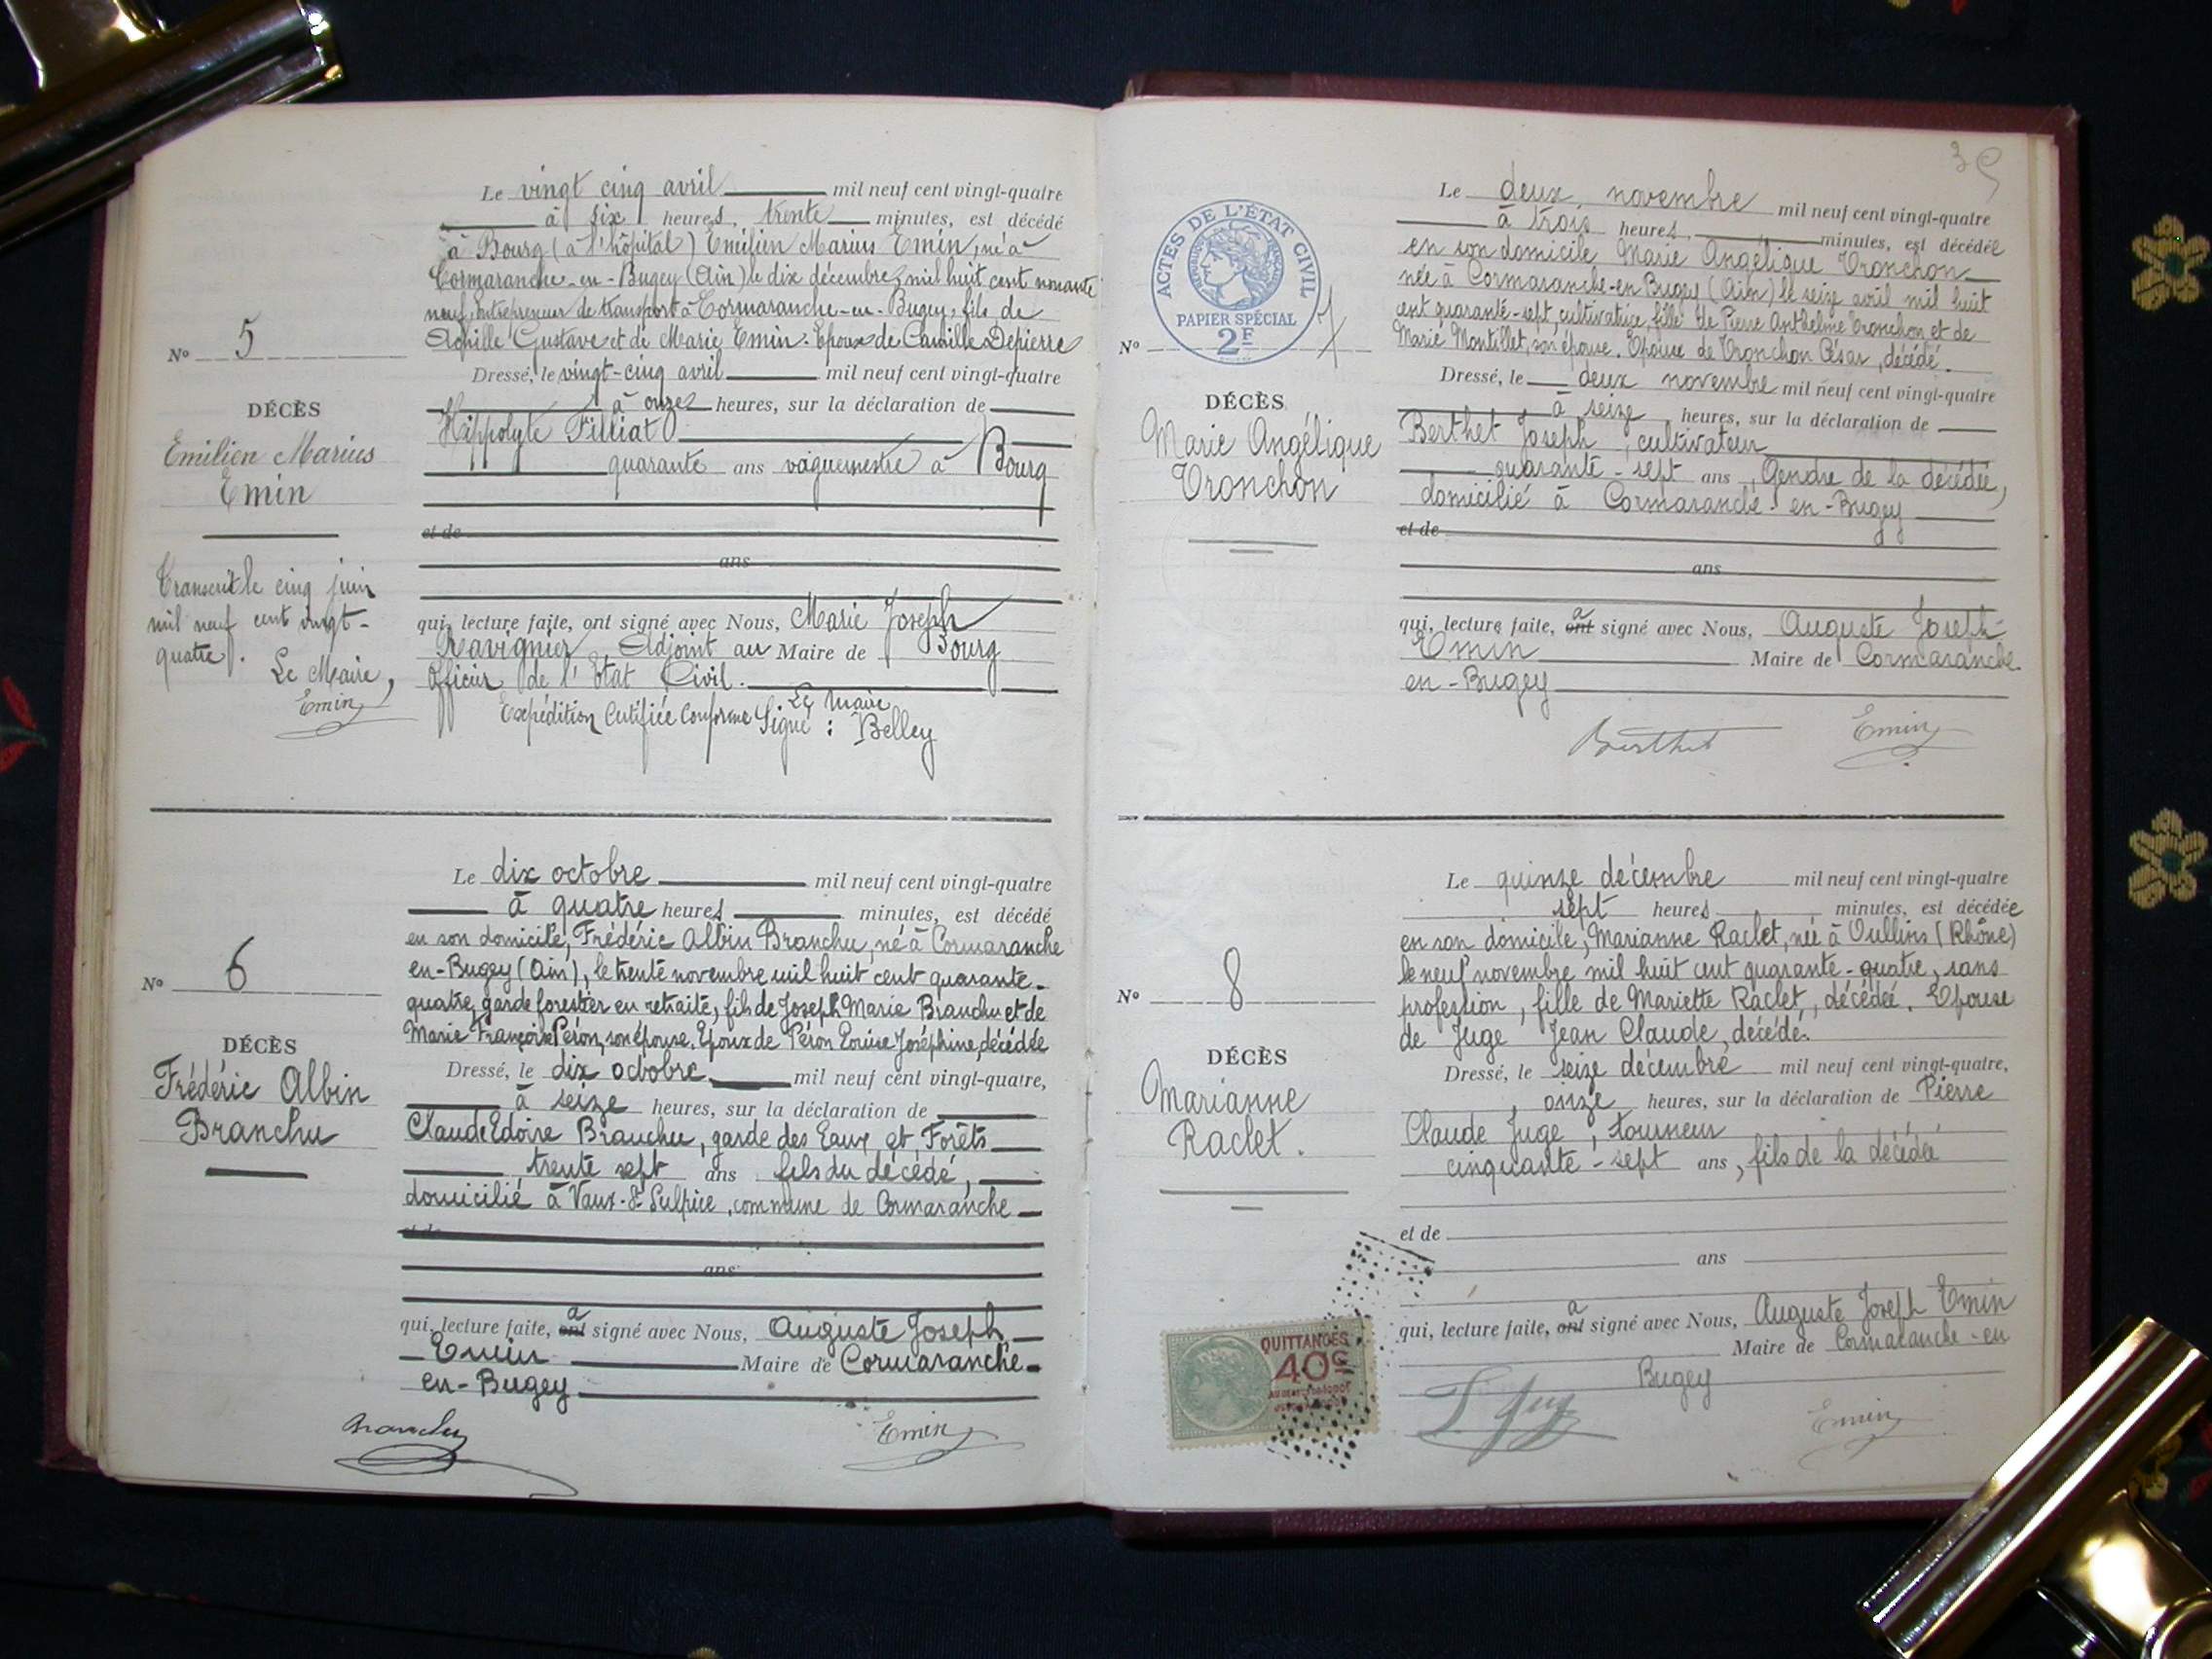 Le vingt cinq avril mil neuf cent vingt-quatre
à six heures, trente minutes, est décédé
à Bourg (à l'hôpital) Emilien Marius Emin, né à
Cormaranche-en-Bugey (Ain) le dix décembre mil huit cent nonante
neuf, entrepreneur de transport à Cormaranche-en-Bugey, fils de
Achille Gustave et de Marie Emin. Epoux de Camille Depierre
Nº 5
Dressé, le vingt-cinq avril mil neuf cent vingt-quatre
à onze heures, sur la déclaration de
DÉCÈS
Hippolyte Filliat
Emilien Marius
Emin
quarante ans vaguemestre à Bourg
et de
ans
Transcrit le cinq juin
mil neuf cent vingt-
quatre.
Le Maire,
Emin
qui, lecture faite, ont signé avec Nous, Marie Joseph
Ravignier, Adjoint au Maire de Bourg
Officier de l'Etat Civil.
Expédition Certifiée Conforme Le Maire
Signé : Belley
Le dix octobre mil neuf cent vingt-quatre
à quatre heures minutes, est décédé
en son domicile, Frédéric Albin Branchu, né à Cormaranche
en-Bugey (Ain), le trente novembre mil huit cent quarante-
quatre, garde forestier en retraite, fils de Joseph Marie Branchu et de
Marie Françoise Péron, son épouse. Epoux de Péron Louise Joséphine, décédée
Nº 6
DÉCÈS
Frédéric Albin
Branchu
Dressé, le dix octobre mil neuf cent vingt-quatre,
à seize heures, sur la déclaration de
Claude Edoire Branchu, garde des Eaux et Forêts
trente sept ans fils du décédé,
domicilié à Vaux-St Sulpice, commune de Cormaranche
et de
ans
qui, lecture faite, ont a signé avec Nous, Auguste Joseph
Emin Maire de Cormaranche-
en-Bugey
Branchu Emin
35
ACTES DE L'ÉTAT CIVIL
PAPIER SPÉCIAL
2F
Le deux novembre mil neuf cent vingt-quatre
à trois heures, minutes, est décédée
en son domicile Marie Angélique Tronchon
née à Cormaranche-en Bugey (Ain) le seize avril mil huit
cent quarante-sept, cultivatrice, fille de Pierre Anthelme Tronchon et de
Marie Montillet, son épouse. Epouse de Tronchon César, décédé.
Nº 7
DÉCÈS
Marie Angélique
Tronchon
Dressé, le deux novembre mil neuf cent vingt-quatre
à seize heures, sur la déclaration de
Berthet Joseph, cultivateur
quarante-sept ans, Gendre de la décédée,
domicilié à Cormaranche-en-Bugey
et de
ans
qui, lecture faite, ont a signé avec Nous, Auguste Joseph
Emin Maire de Cormaranche
en-Bugey
Berthet Emin
Le quinze décembre mil neuf cent vingt-quatre
sept heures minutes, est décédée
en son domicile, Marianne Raclet, née à Oullins (Rhône)
le neuf novembre mil huit cent quarante-quatre, sans
profession, fille de Mariette Raclet, décédée. Epouse
de Juge Jean Claude, décédé.
Nº 8
DÉCÈS
Marianne
Raclet.
Dressé, le seize décembre mil neuf cent vingt-quatre,
onze heures, sur la déclaration de Pierre
Claude Juge, tourneur
cinquante-sept ans, fils de la décédée
et de
ans
qui, lecture faite, ont a signé avec Nous, Auguste Joseph Emin
Maire de Cormaranche-en
Bugey
Emin
QUITTANCES
40c